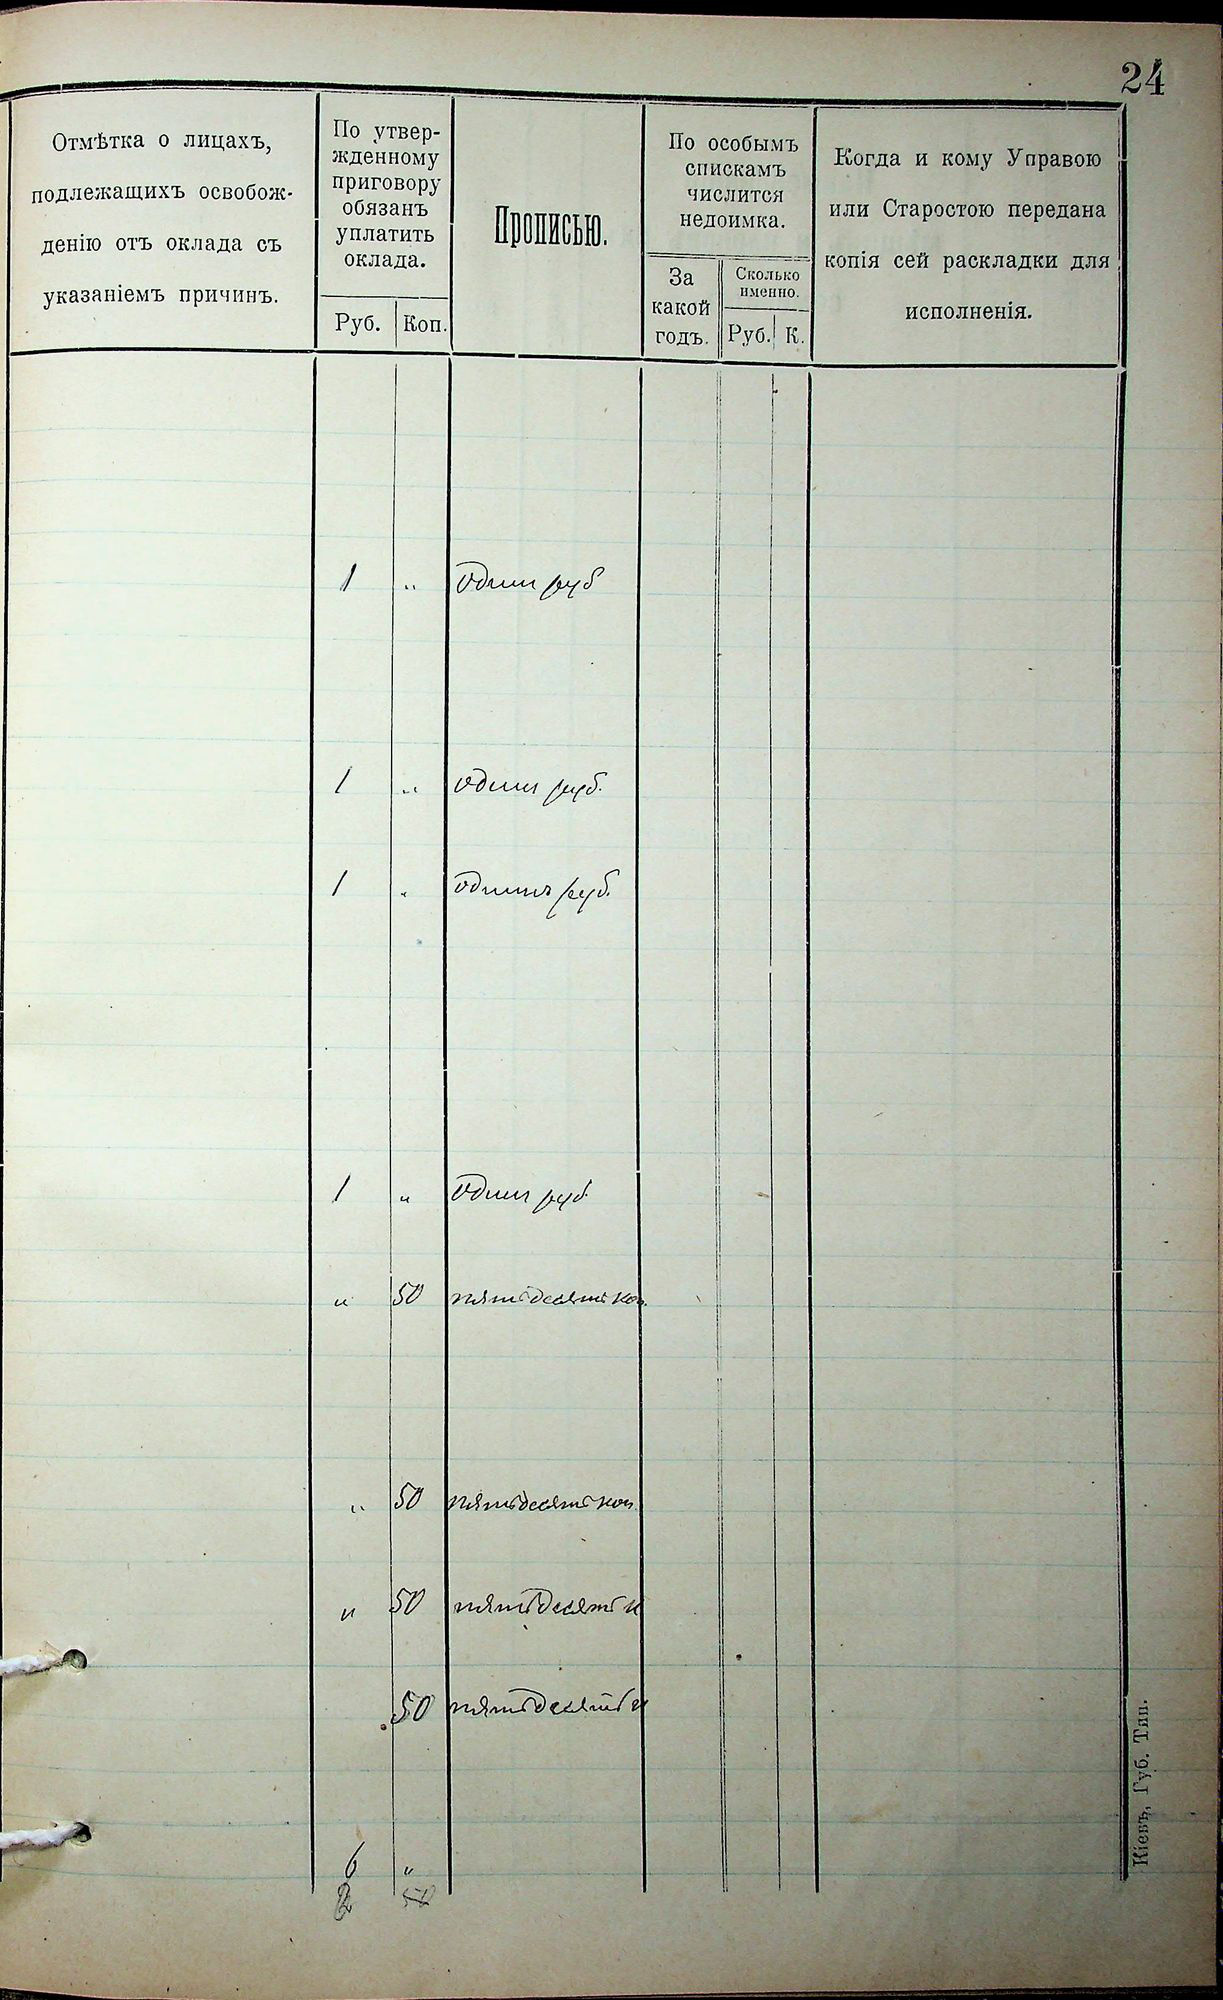 24
Отмѣтка о лицахъ,
подлежащихъ освобож-
денію отъ оклада съ
указаніемъ причинъ.
По утвер-
жденному
приговору
обязанъ
уплатить
оклада.
Руб. Коп.
Прописью.
По особымъ
спискамъ
числится
недоимка.
За
какой
годъ.
Сколько
именно.
Руб. К.
Когда и кому Управою
или Старостою передана
копія сей раскладки для
исполненія.
1 " один руб
1 " один руб.
1 " одинъ руб.
1 " один руб.
" 50 пятьдесятъ коп.
" 50 пятьдесятъ коп.
" 50 пятьдесятъ к
50 пятьдесятъ к
6 "
50
Кіевъ, Губ. Тип.